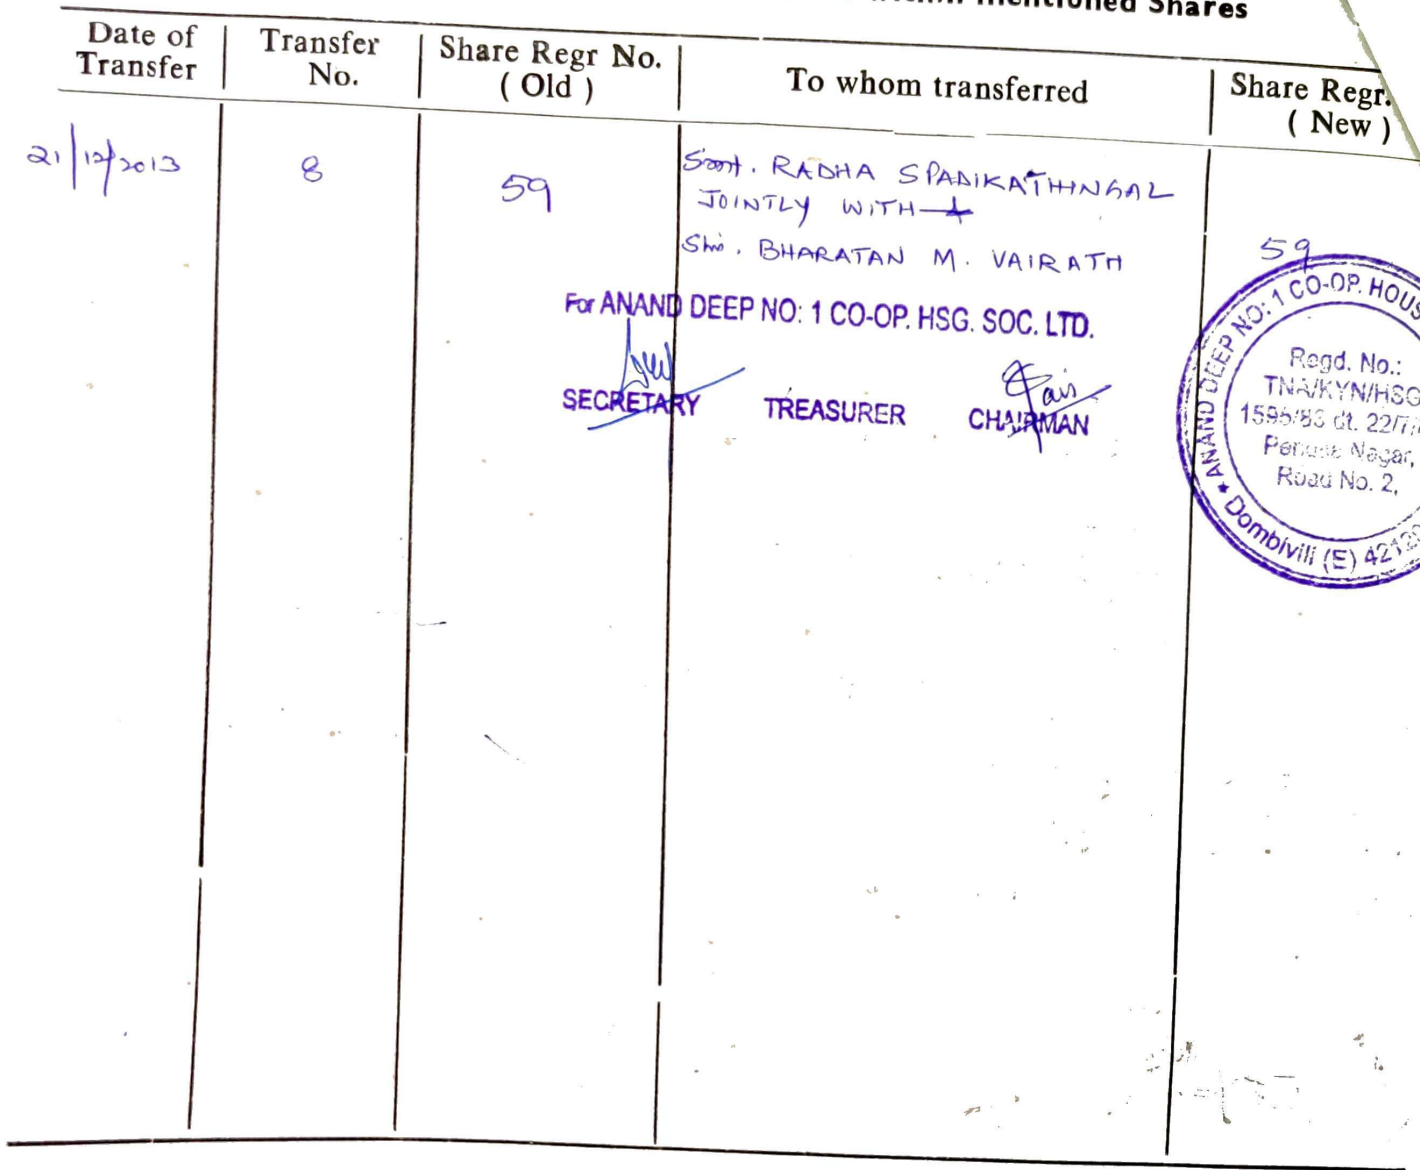 mentioned Shares
Date of Transfer | Transfer No. | Share Regr No. ( Old ) | To whom transferred | Share Regr. ( New )
21/12/2013 | 8 | 59 | Smt. RADHA SPADIKATHINGAL
JOINTLY WITH
Shri. BHARATAN M. VAIRATH | 59
For ANAND DEEP NO: 1 CO-OP. HSG. SOC. LTD.
SECRETARY TREASURER CHAIRMAN
★ ANAND DEEP NO: 1 CO-OP. HOUS
Regd. No.:
TNA/KYN/HSG
1595/83 dt. 22/7/
Nagar,
Road No. 2,
Dombivili (E) 42120